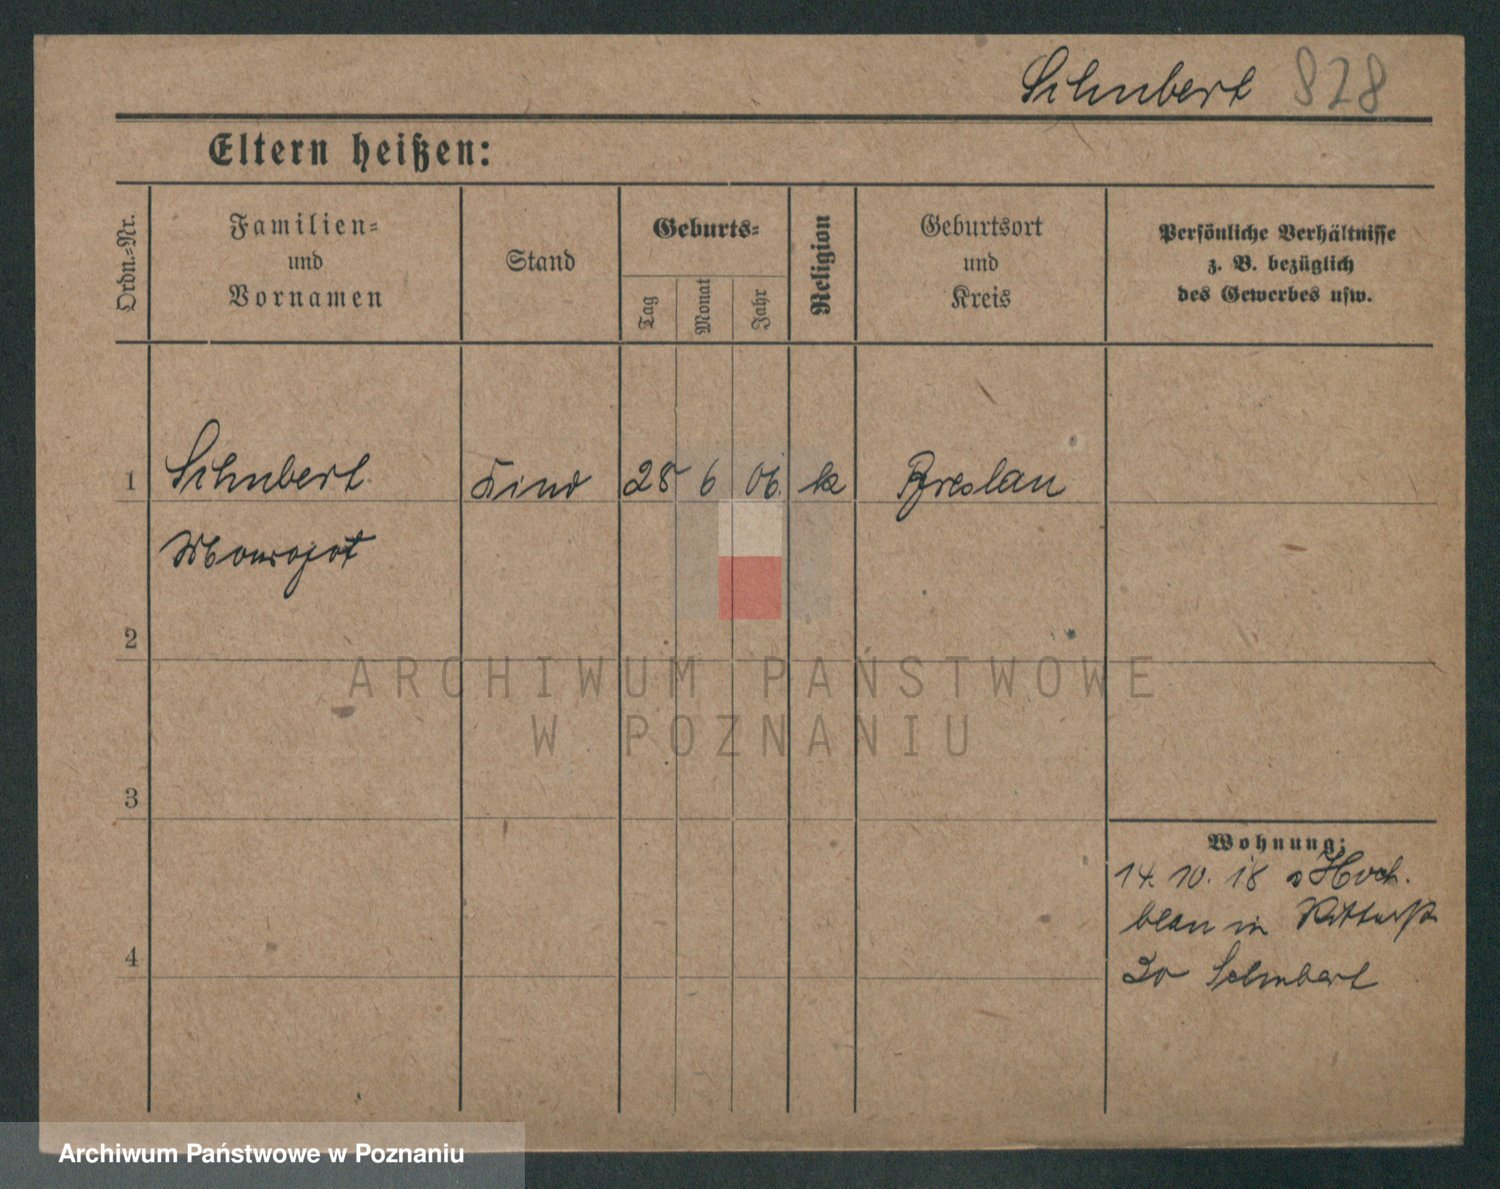 Schubert 828
Eltern heißen:
Ordn.=Nr.
Familien=
und
Vornamen
Stand
Geburts=
Tag
Monat
Jahr
Religion
Geburtsort
und
Kreis
Persönliche Verhältnisse
z. B. bezüglich
des Gewerbes usw.
1 Schubert Kind 28 6 06. k Breslau
2
3
4
Wohnung:
14. 10. 18
in Ritterstr
30 Schubert
ARCHIWUM PAŃSTWOWE
W POZNANIU
Archiwum Państwowe w Poznaniu